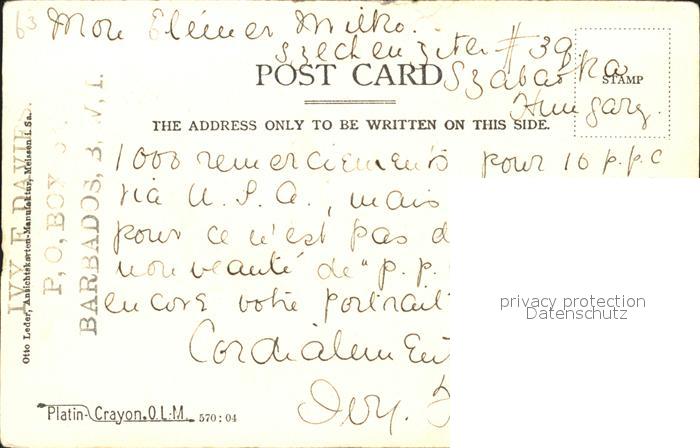 63 Mon Elémer Milko.
Szechenyiter # 39
POST CARD Szabadka
STAMP
Hungary.
THE ADDRESS ONLY TO BE WRITTEN ON THIS SIDE.
1000 remerciements pour 10 p.p.c
via U.S.A., mais
pour ce n'est pas d
nouveauté de "p.p.
encore votre portrait
Cordialement
Ivy.
privacy protection
Datenschutz
IVY E. DAVIES
P.O. BOX
BARBADOS, B.W.I.
Otto Leder, Ansichtskarten-Manufaktur, Meissen i. Sa.
Platin-Crayon. O.L.M. 570:04